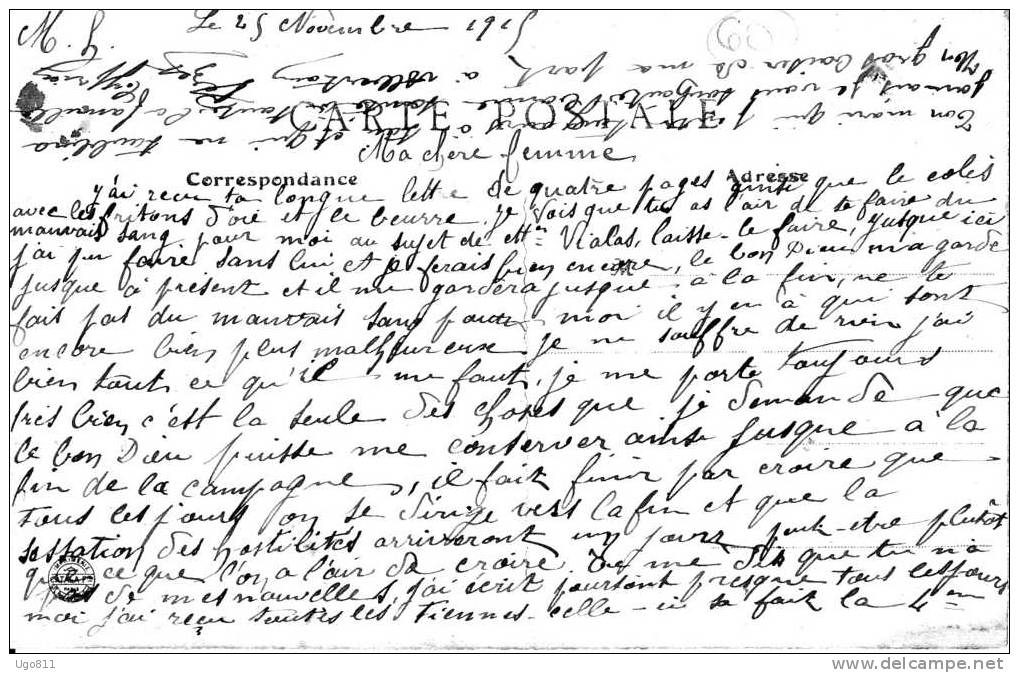 M. J. Le 25 Novembre 1915
CARTE POSTALE
Ma chère femme
Correspondance Adresse
j'ai reçu ta longue lettre de quatre pages ainsi que le colis
avec les fritons d'oie et le beurre. Je vois que tu as l'air de te faire du
mauvais sang pour moi au sujet de cet Vialas, laisse-le faire, jusque ici
j'ai pu faire sans lui et je ferais bien encore, le bon Dieu m'a garde
jusque à présent et il me gardera jusque à la fin, ne te
fais pas du mauvais sang pour moi il y en à qui sont
encore bien plus malheureux je ne souffre de rien j'ai
bien tout ce qu'il me faut, je me porte toujours
très bien c'est la seule des choses que je demande que
le bon Dieu puisse me conserver ainsi jusque à la
fin de la campagne, il fait finir par croire que
tous les jours on se dirige vers la fin et que la
sessation des hostilités arriveront un jours peut-etre plutôt
que ce que l'on a l'air de croire. Tu me dis que tu n'a
pas de mes nouvelles, j'ai écrit pourtant presque tous les jours
moi j'ai reçu toutes les tiennes. celle-ci se fait la 4em
Ton mari qui et qui ne t'oublira
jamais je vous toute la famille
Mon gros baiser de ma part à
Ugo811
http://www.delcampe.net